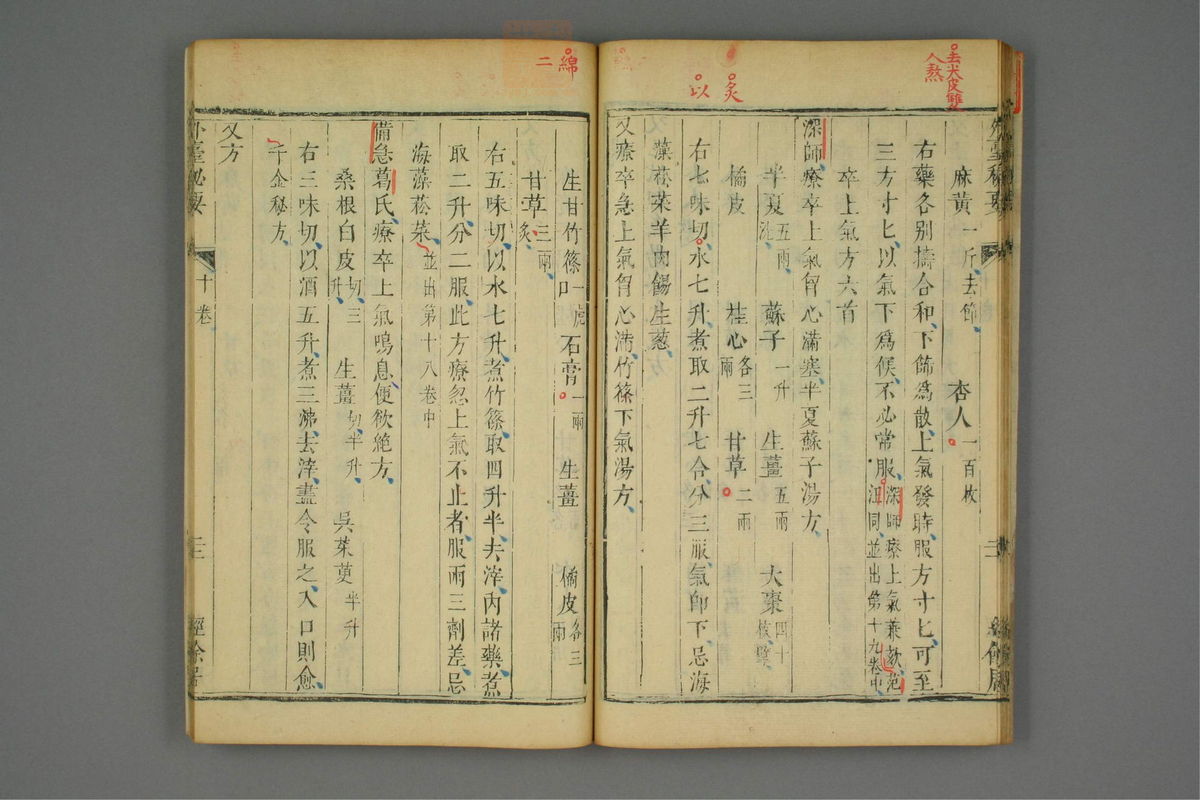 去尖皮雙
人熬
炙
以
麻黃一斤去節 杏人一百枚
右藥各別擣合和下篩爲散上氣發時服方寸匕可至
三方寸匕以氣下爲候不必常服深師療上氣兼欬范
汪同並出第十九卷中
卒上氣方六首
深師療卒上氣胷心滿塞半夏蘇子湯方
半夏五兩洗 蘇子一升 生薑五兩 大棗四十枚擘
橘皮 桂心各三兩 甘草二兩
右七味切水七升煮取二升七合分三服氣即下忌海
藻菘菜羊肉餳生蔥
又療卒急上氣胷心滿竹篠下氣湯方
綿
二
生甘竹篠一虎口 石膏一兩 生薑 橘皮各三兩
甘草三兩炙
右五味切以水七升煮竹篠取四升半去滓內諸藥煮
取二升分二服此方療忽上氣不止者服兩三劑差忌
海藻菘菜並出第十八卷中
備急葛氏療卒上氣鳴息便欲絕方
桑根白皮切三升 生薑切半升 吳茱萸半升
右三味切以酒五升煮三沸去滓盡令服之入口則愈
千金秘方
又方
外臺秘要 十卷 三 經餘居